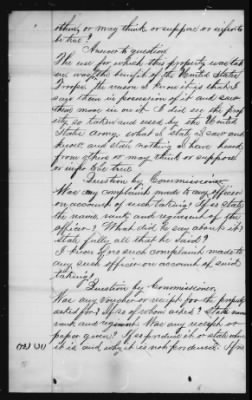 others, or may think or suppose or infer to
be true?
Answer to question
The use for which this property was tak
en was the benefit of the United States
Troops the reason I know it is that I
saw them in possession of it and saw
them move in on it I did see the prop
erty so taken and used by the United
States Army. what I state I saw and
know and state nothing I have heard
from others or may think or suppose
or infer to be true.
Question by Commissioner
Was any complaint made to any officer
on account of such taking? If so state
the name, rank and regiment of the
officer? What did he say about it?
State fully all that he said?
I know of no such complaint made to
any such officer on account of said
taking?
Question by Commissioner.
Was any voucher or receipt for the property
asked for? If so of whom asked? State name
rank and regiment. Was any receipt or
paper given? If so produce it or state where
it is and why it is not produced. If no